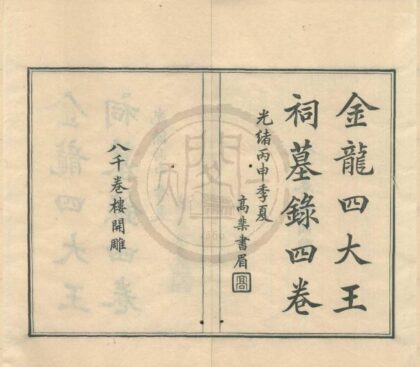 金龍四大王
祠墓錄四卷
光緒丙申季夏
高業書眉
高
八千卷樓開雕